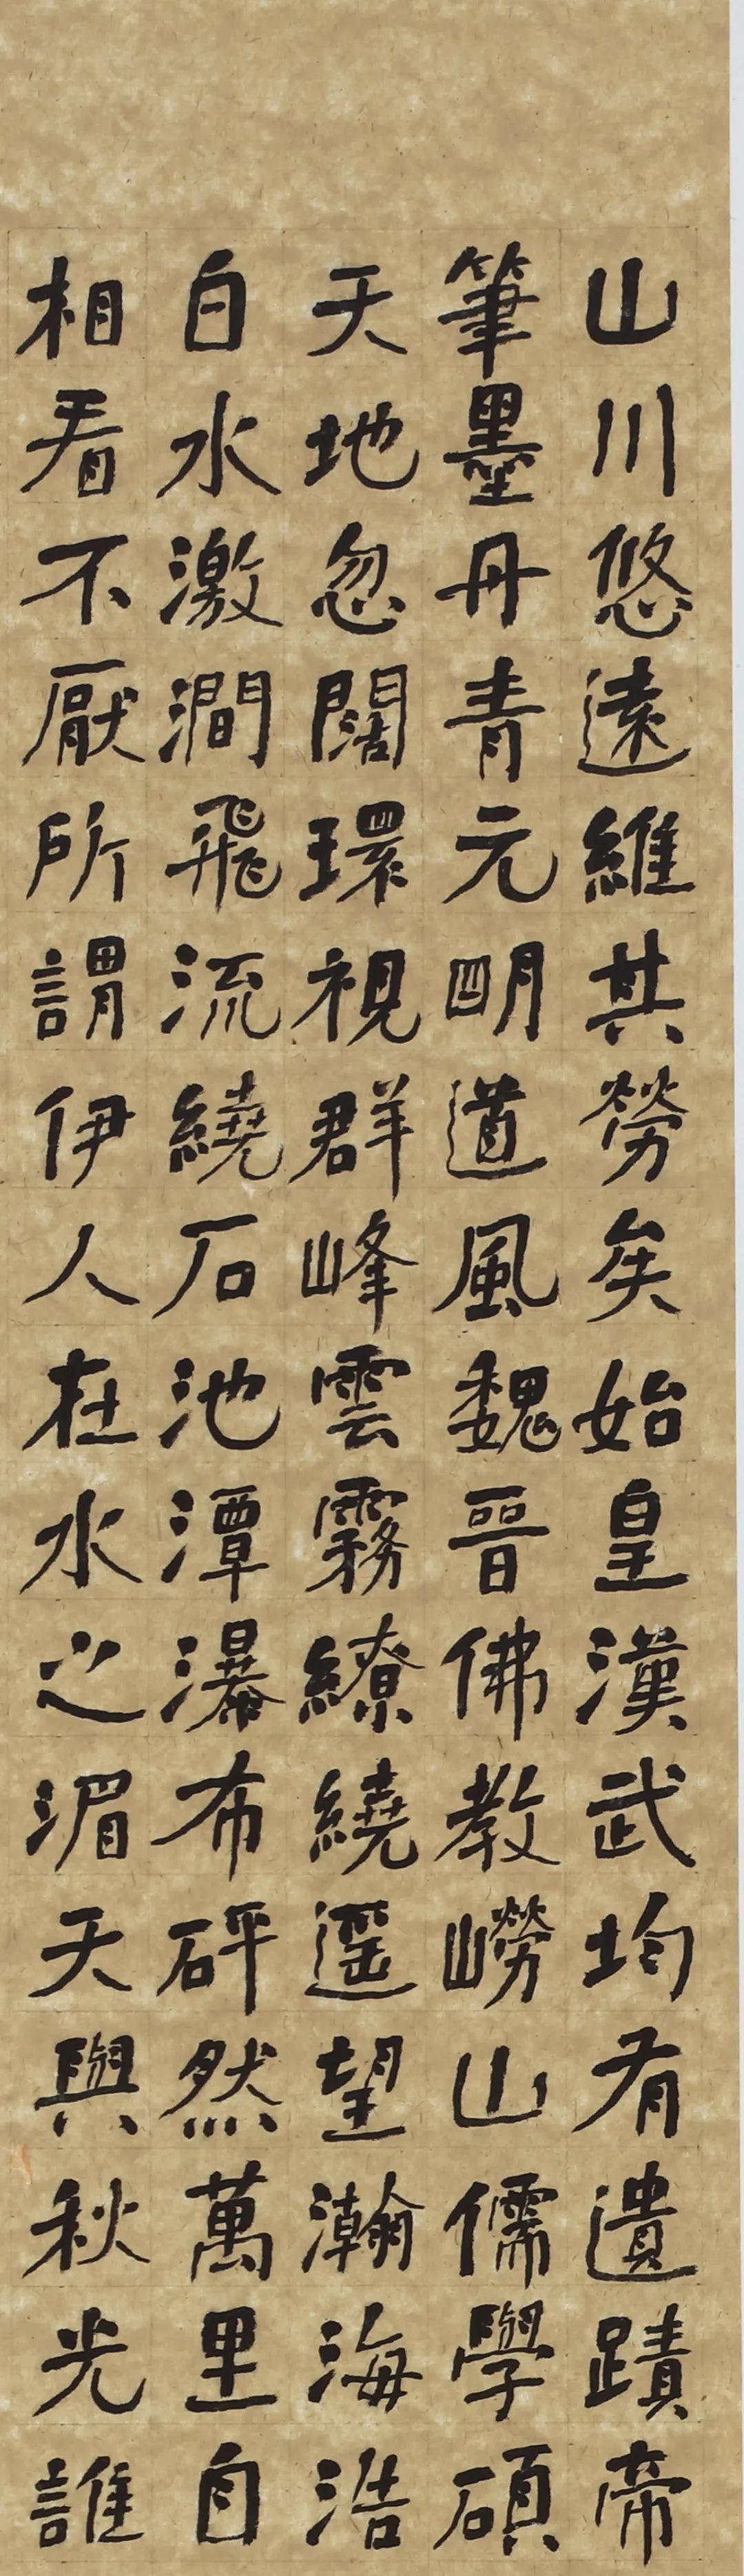 山川悠遠維其勞矣始皇漢武均有遺蹟帝
筆墨丹青元明道風魏晉佛教嶗山儒學碩
天地忽闊環視群峰雲霧繚繞遥望瀚海浩
白水激澗飛流繞石池潭瀑布砰然萬里自
相看不厭所謂伊人在水之湄天與秋光誰